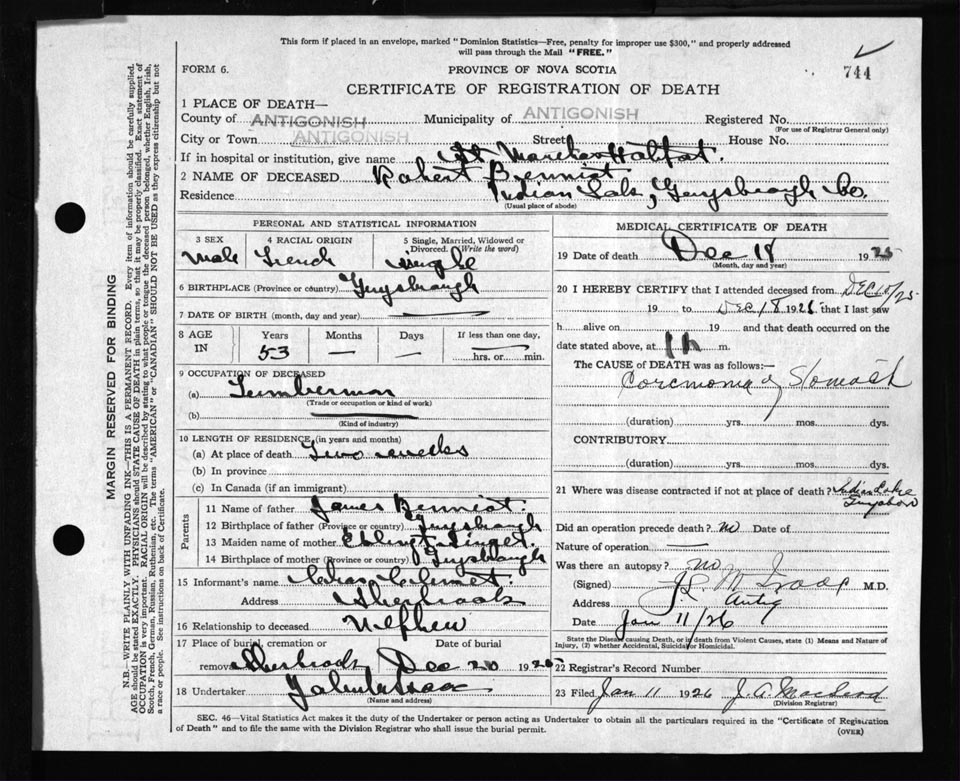 This form if placed in an envelope, marked "Dominion Statistics—Free, penalty for improper use $300," and properly addressed
will pass through the Mail "FREE."
FORM 6.
PROVINCE OF NOVA SCOTIA
744
CERTIFICATE OF REGISTRATION OF DEATH
1 PLACE OF DEATH—
County of ANTIGONISH Municipality of ANTIGONISH Registered No.
(For use of Registrar General only)
City or Town ANTIGONISH Street House No.
If in hospital or institution, give name St
2 NAME OF DECEASED Robert
Residence Indian , Guysbrough Co.
(Usual place of abode)
PERSONAL AND STATISTICAL INFORMATION
3 SEX 4 RACIAL ORIGIN 5 Single, Married, Widowed or Divorced. (Write the word)
Male French Single
6 BIRTHPLACE (Province or country) Guysbrough
7 DATE OF BIRTH (month, day and year) —
8 AGE IN Years Months Days If less than one day,
53 — — — hrs. or min.
9 OCCUPATION OF DECEASED
(a) Lumberman
(Trade or occupation or kind of work)
(b) —
(Kind of industry)
10 LENGTH OF RESIDENCE (in years and months)
(a) At place of death Two weeks
(b) In province
(c) In Canada (if an immigrant)
Parents
11 Name of father James
12 Birthplace of father (Province or country) Guysbrough
13 Maiden name of mother
14 Birthplace of mother (Province or country) Guysbrough
15 Informant's name
Address Sherbrooke
16 Relationship to deceased Nephew
17 Place of burial, cremation or removal Date of burial
Sherbrooke Dec 20 19
18 Undertaker
(Name and address)
MEDICAL CERTIFICATE OF DEATH
19 Date of death Dec 18 1925
(Month, day and year)
20 I HEREBY CERTIFY that I attended deceased from DEC 10/25
19 to DEC 18 1925 that I last saw
h alive on 19 and that death occurred on the
date stated above, at m.
The CAUSE of DEATH was as follows:—
of Stomach
(duration) yrs. mos. dys.
CONTRIBUTORY
(duration) yrs. mos. dys.
21 Where was disease contracted if not at place of death? Indian Lake
Did an operation precede death? no Date of
Nature of operation —
Was there an autopsy? no
(Signed) M.D.
Address Antig
Date Jan 11/26
State the Disease causing Death, or in death from Violent Causes, state (1) Means and Nature of Injury, (2) whether Accidental, Suicidal or Homicidal.
22 Registrar's Record Number
23 Filed Jan 11 1926 J. A. MacLeod
(Division Registrar)
SEC. 46—Vital Statistics Act makes it the duty of the Undertaker or person acting as Undertaker to obtain all the particulars required in the "Certificate of Registration
of Death" and to file the same with the Division Registrar who shall issue the burial permit.
(OVER)
MARGIN RESERVED FOR BINDING
N.B.—WRITE PLAINLY WITH UNFADING INK—THIS IS A PERMANENT RECORD. Every item of information should be carefully supplied.
AGE should be stated EXACTLY. PHYSICIANS should STATE CAUSE OF DEATH in plain terms, so that it may be properly classified. Exact statement of
OCCUPATION is very important. RACIAL ORIGIN will be described by stating to what people or tongue the deceased person belonged, whether English, Irish,
Scotch, French, German, Russian, Ruthenian, etc. The terms "AMERICAN" or "CANADIAN" SHOULD NOT BE USED as they express citizenship but not
a race or people. See instructions on back of Certificate.